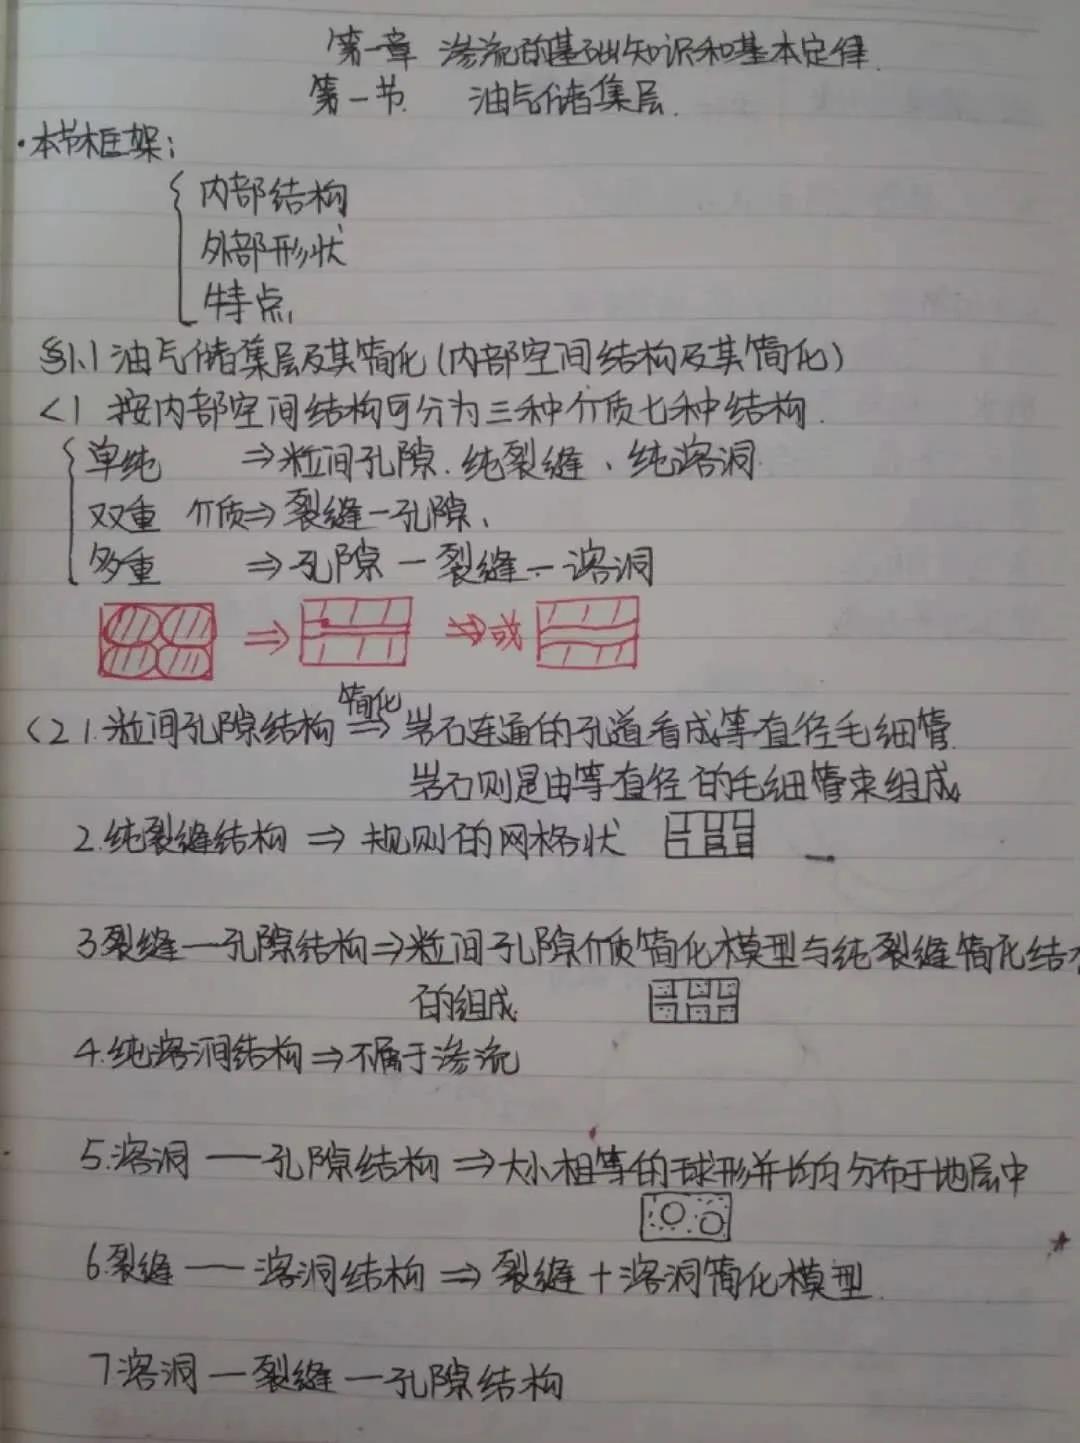 第一章 渗流的基础知识和基本定律.
第一节. 油气储集层.
·本节框架:
内部结构
外部形状
特点,
§1.1 油气储集层及其简化(内部空间结构及其简化)
<1 按内部空间结构可分为三种介质七种结构.
单纯 ⇒粒间孔隙.纯裂缝、纯溶洞.
双重 介质⇒裂缝—孔隙、
多重 ⇒孔隙—裂缝—溶洞
⇒ ⇒或
简化
<2 1.粒间孔隙结构 ⇒ 岩石连通的孔道看成等直径毛细管.
岩石则是由等直径的毛细管束组成
2.纯裂缝结构 ⇒ 规则的网格状
3.裂缝—孔隙结构⇒粒间孔隙介质简化模型与纯裂缝简化结构
的组成.
4.纯溶洞结构⇒不属于渗流
5.溶洞—孔隙结构⇒大小相等的球形并均匀分布于地层中
6.裂缝—溶洞结构⇒裂缝+溶洞简化模型.
7溶洞—裂缝—孔隙结构